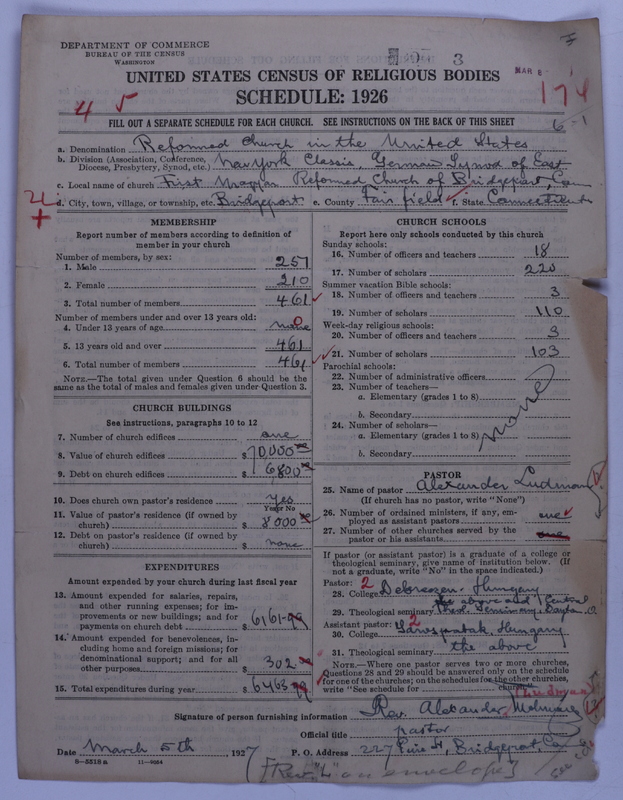 DEPARTMENT OF COMMERCE
BUREAU OF THE CENSUS
WASHINGTON
3
UNITED STATES CENSUS OF RELIGIOUS BODIES
MAR 8
SCHEDULE: 1926
4
174
FILL OUT A SEPARATE SCHEDULE FOR EACH CHURCH. SEE INSTRUCTIONS ON THE BACK OF THIS SHEET
6-1
a. Denomination Reformed Church in the United States
b. Division (Association, Conference, Diocese, Presbytery, Synod, etc.) New York Classis German Synod of East
c. Local name of church First Magyar Reformed Church of Bridgeport, Conn
d. City, town, village, or township, etc. Bridgeport e. County Fairfield f. State Connecticut
MEMBERSHIP
Report number of members according to definition of member in your church
Number of members, by sex:
1. Male 251
2. Female 210
3. Total number of members 461
Number of members under and over 13 years old:
4. Under 13 years of age none 0
5. 13 years old and over 461
6. Total number of members 461
NOTE.—The total given under Question 6 should be the same as the total of males and females given under Question 3.
CHURCH BUILDINGS
See instructions, paragraphs 10 to 12
7. Number of church edifices one
8. Value of church edifices $ 70,000
9. Debt on church edifices $ 6,800
10. Does church own pastor's residence Yes
Yes or No
11. Value of pastor's residence (if owned by church) $ 8000
12. Debt on pastor's residence (if owned by church) $ none
EXPENDITURES
Amount expended by your church during last fiscal year
13. Amount expended for salaries, repairs, and other running expenses; for improvements or new buildings; and for payments on church debt $ 6161.99
14. Amount expended for benevolences, including home and foreign missions; for denominational support; and for all other purposes $ 302
15. Total expenditures during year $ 6463.99
CHURCH SCHOOLS
Report here only schools conducted by this church
Sunday schools:
16. Number of officers and teachers 18
17. Number of scholars 220
Summer vacation Bible schools:
18. Number of officers and teachers 3
19. Number of scholars 110
Week-day religious schools:
20. Number of officers and teachers 3
21. Number of scholars 103
Parochial schools:
22. Number of administrative officers
23. Number of teachers—
a. Elementary (grades 1 to 8)
b. Secondary
24. Number of scholars—
a. Elementary (grades 1 to 8)
b. Secondary
none
PASTOR
25. Name of pastor Alexander
(If church has no pastor, write "None")
26. Number of ordained ministers, if any, employed as assistant pastors one
27. Number of other churches served by the pastor or his assistants
If pastor (or assistant pastor) is a graduate of a college or theological seminary, give name of institution below. (If not a graduate, write "No" in the space indicated.)
Pastor: 2
28. College Debreczen, Hungary
29. Theological seminary the above and Central Theol. Seminary, Dayton, O
Assistant pastor: 2
30. College Sarospatak, Hungary
31. Theological seminary the above
NOTE.—Where one pastor serves two or more churches, Questions 28 and 29 should be answered only on the schedule for one of the churches; on the schedules for the other churches, write "See schedule for church"
Signature of person furnishing information Rev. Alexander
Official title pastor
Date March 5th 1927 P. O. Address 227 Pine St, Bridgeport, Co
8-5518a 11-9264
[Rev. "L" on envelope]